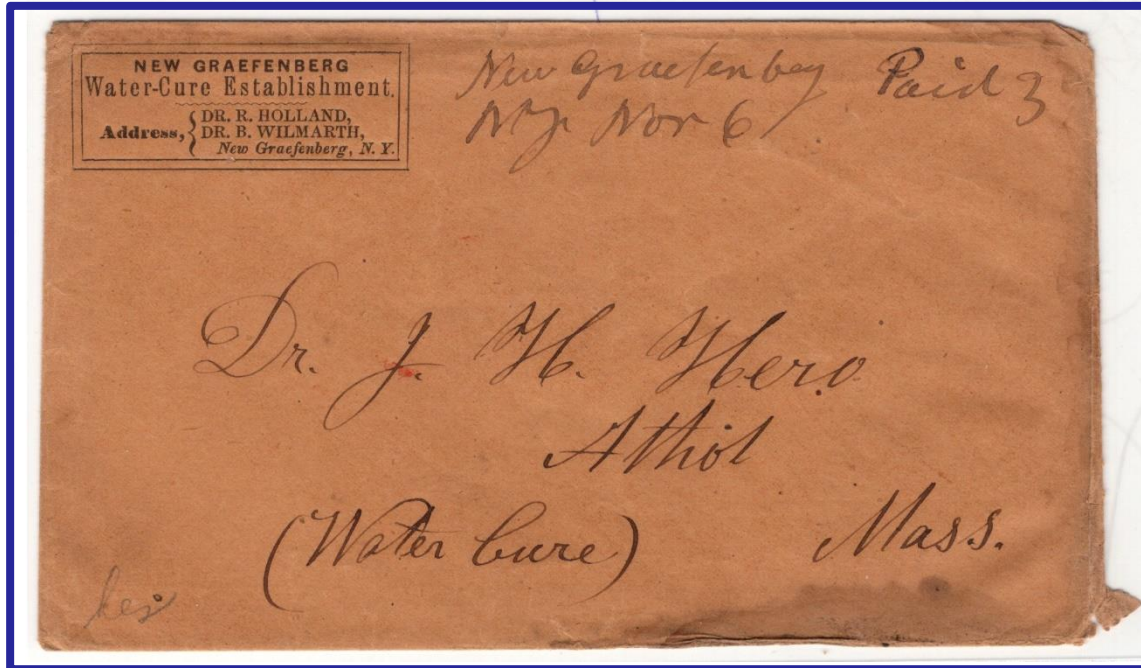 NEW GRAEFENBERG
Water-Cure Establishment.
Address, { DR. R. HOLLAND,
DR. B. WILMARTH,
New Graefenberg, N. Y.
New Graefenberg Paid 3
N.Y. Nov 6
Dr. J. H. Hero
Athol
(Water Cure) Mass.